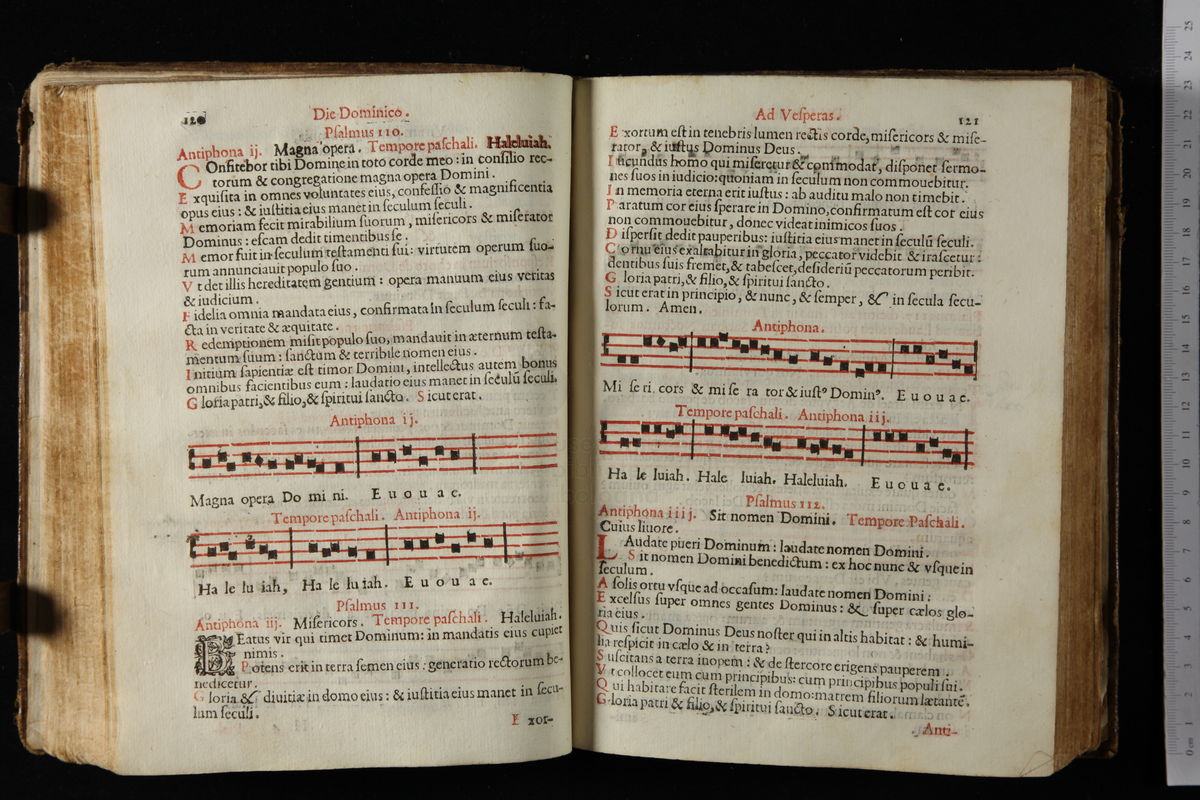 120
Die Dominico.
Psalmus 110.
Antiphona ij. Magna opera. Tempore paschali. Haleluiah.
COnfitebor tibi Domine in toto corde meo: in consilio rec-
torum & congregatione magna opera Domini.
Exquisita in omnes voluntates eius, confessio & magnificentia
opus eius: & iustitia eius manet in seculum seculi.
Memoriam fecit mirabilium suorum, misericors & miserator
Dominus: escam dedit timentibus se.
Memor fuit in seculum testamenti sui: virtutem operum suo-
rum annunciauit populo suo.
Vt det illis hereditatem gentium: opera manuum eius veritas
& iudicium.
Fidelia omnia mandata eius, confirmata in seculum seculi: fa-
cta in veritate & æquitate.
Redemptionem misit populo suo, mandauit in æternum testa-
mentum suum: sanctum & terribile nomen eius.
Initium sapientiæ est timor Domini, intellectus autem bonus
omnibus facientibus eum: laudatio eius manet in seculũ seculi.
Gloria patri, & filio, & spiritui sancto. Sicut erat.
Antiphona ij.
Magna opera Do mi ni. E u o u a e.
Tempore paschali. Antiphona ij.
Ha le lu iah, Ha le lu iah. E u o u a e.
Psalmus 111.
Antiphona iij. Misericors. Tempore paschali. Haleluiah.
BEatus vir qui timet Dominum: in mandatis eius cupiet
nimis.
Potens erit in terra semen eius: generatio rectorum be-
nedicetur.
Gloria & diuitiæ in domo eius: & iustitia eius manet in secu-
lum seculi.
Exor-
Ad Vesperas.
121
Exortum est in tenebris lumen rectis corde, misericors & mise-
rator, & iustus Dominus Deus.
Iucundus homo qui miseretur & commodat, disponet sermo-
nes suos in iudicio: quoniam in seculum non commouebitur.
In memoria eterna erit iustus: ab auditu malo non timebit.
Paratum cor eius sperare in Domino, confirmatum est cor eius
non commouebitur, donec videat inimicos suos.
Dispersit dedit pauperibus: iustitia eius manet in seculũ seculi.
Cornu eius exaltabitur in gloria, peccator videbit & irascetur:
dentibus suis fremet, & tabescet, desideriũ peccatorum peribit.
Gloria patri, & filio, & spiritui sancto.
Sicut erat in principio, & nunc, & semper, & in secula secu-
lorum. Amen.
Antiphona.
Mi se ri. cors & mi se ra tor & iustꝰ Dominꝰ. E u o u a e.
Tempore paschali. Antiphona iij.
Ha le luiah. Hale luiah. Haleluiah. E u o u a e.
Psalmus 112.
Antiphona iiij. Sit nomen Domini. Tempore Paschali.
Cuius liuore.
LAudate pueri Dominum: laudate nomen Domini.
Sit nomen Domini benedictum: ex hoc nunc & vsque in
seculum.
A solis ortu vsque ad occasum: laudate nomen Domini:
Excelsus super omnes gentes Dominus: & super cælos glo-
ria eius.
Quis sicut Dominus Deus noster qui in altis habitat: & humi-
lia respicit in cælo & in terra?
Suscitans a terra inopem: & de stercore erigens pauperem.
Vt collocet eum cum principibus: cum principibus populi sui.
Qui habitare facit sterilem in domo: matrem filiorum lætantẽ.
Gloria patri & filio, & spiritui sancto. Sicut erat.
Anti-